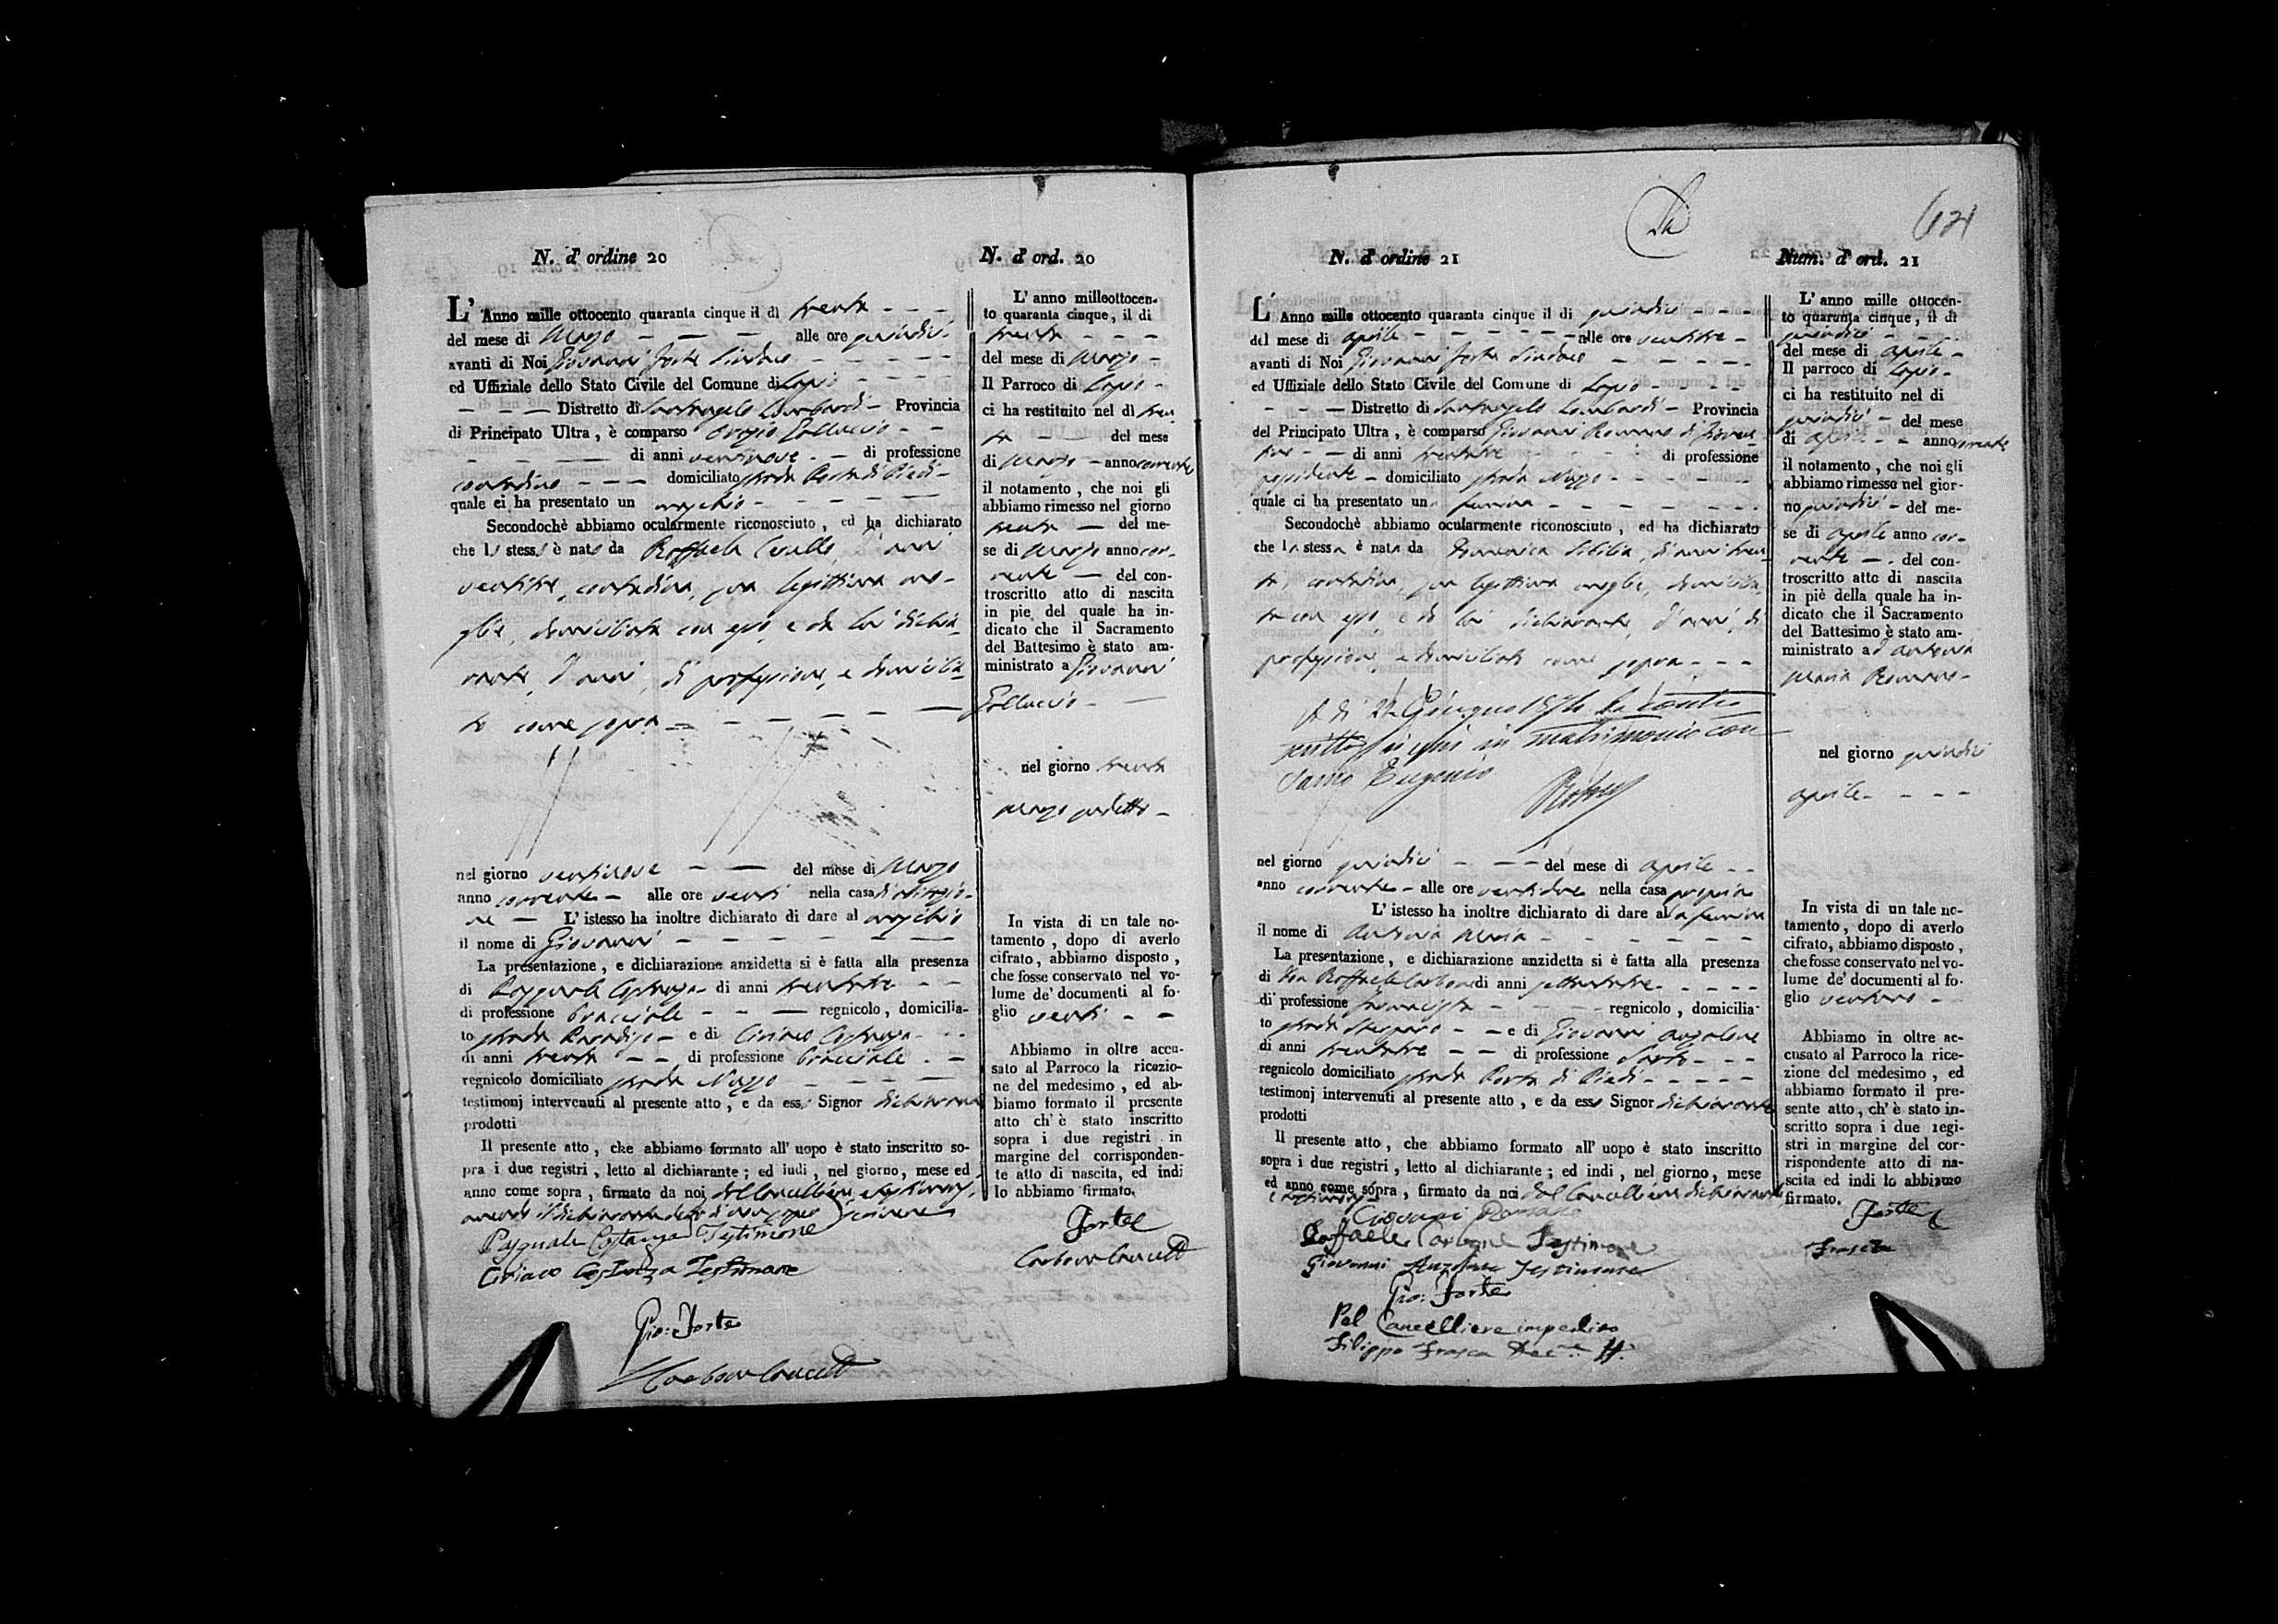 N. d' ordine 20
L' Anno mille ottocento quaranta cinque il di trenta - - -
del mese di Marzo - - - alle ore quindici
avanti di Noi Giovanni Forte Sindaco - - - - -
ed Uffiziale dello Stato Civile del Comune di Lapio - - - -
- - - Distretto di Santangelo Lombardi - Provincia
di Principato Ultra , è comparso Orazio - -
- - - di anni ventinove - - di professione
contadino - - - domiciliato strada Porta di Piedi -
quale ci ha presentato un maschio - - - - -
Secondochè abbiamo ocularmente riconosciuto , ed ha dichiarato
che lo stesso è nato da Raffaela d'anni
ventitre, contadina, sua legittima mo-
glie, domiciliata con esso, e da lui dichia-
rante, d'anni, di professione, e domicilia-
to come sopra - - - - - -
nel giorno ventinove - - del mese di Marzo
anno corrente - alle ore venti nella casa di abitazio-
ne - L' istesso ha inoltre dichiarato di dare al maschio
il nome di Giovanni - - - - - -
La presentazione , e dichiarazione anzidetta si è fatta alla presenza
di Pasquale Castanza - di anni trentatre - -
di professione bracciale - - - regnicolo , domicilia-
to strada Paradiso - e di Ciriaco Castanza - - -
di anni trenta - - di professione bracciale - -
regnicolo domiciliato strada Mazzo - - - - -
testimonj intervenuti al presente atto , e da esso Signor dichiarante
prodotti
Il presente atto , che abbiamo formato all' uopo è stato inscritto so-
pra i due registri , letto al dichiarante ; ed indi , nel giorno, mese ed
anno come sopra , firmato da noi, dal Cancelliere, e testimonj,
avendo il dichiarante detto di non sapere scrivere
Pasquale Castanza Testimone
Ciriaco Castanza Testimone
Gio: Forte
N. d' ord. 20
L' anno milleottocen-
to quaranta cinque , il di
trenta - - -
del mese di Marzo -
Il Parroco di Lapio -
ci ha restituito nel di tren
ta - - del mese
di Marzo - anno corrente
il notamento , che noi gli
abbiamo rimesso nel giorno
trenta - del me-
se di Marzo anno cor-
rente - del con-
troscritto atto di nascita
in piè del quale ha in-
dicato che il Sacramento
del Battesimo è stato am-
ministrato a Giovanni
nel giorno trenta
Marzo suddetto -
In vista di un tale no-
tamento , dopo di averlo
cifrato , abbiamo disposto ,
che fosse conservato nel vo-
lume de' documenti al fo-
glio venti - -
Abbiamo in oltre accu-
sato al Parroco la ricezio-
ne del medesimo , ed ab-
biamo formato il presente
atto ch' è stato inscritto
sopra i due registri in
margine del corrisponden-
te atto di nascita, ed indi
lo abbiamo firmato.
Forte
N. d' ordine 21
L' Anno mille ottocento quaranta cinque il di quindici - - -
del mese di aprile - - - - - - alle ore ventitre -
avanti di Noi Giovanni Forte Sindaco - - - - -
ed Uffiziale dello Stato Civile del Comune di Lapio - - - -
- - - Distretto di Santangelo Lombardi - Provincia
del Principato Ultra , è comparso Giovanni Romano di
- - di anni trentatre - - - di professione
possidente - domiciliato strada Mazzo - - - - -
quale ci ha presentato una femina - - - - - -
Secondochè abbiamo ocularmente riconosciuto , ed ha dichiarato
che la stessa è nata da Domenica Sibilia, di anni tren-
ta, contadina, sua legittima moglie, domicilia-
ta con esso, e da lui dichiarante, d'anni, di
professione, e domiciliato come sopra - - -
A di Giugno ha contra
in matrimonio con
Eugenio
nel giorno quindici - - - del mese di aprile - -
anno corrente - alle ore ventidue nella casa propria
L' istesso ha inoltre dichiarato di dare alla femina
il nome di Antonia Maria - - - - - -
La presentazione , e dichiarazione anzidetta si è fatta alla presenza
di Don Raffaele Carbone di anni settantatre - - - - -
di professione farmacista - - - regnicolo , domicilia-
to strada - - e di Giovanni Anzalone
di anni trentatre - - di professione Sarto - - -
regnicolo domiciliato strada Porta di Piedi - - - - -
testimonj intervenuti al presente atto , e da esso Signor dichiarante
prodotti
Il presente atto , che abbiamo formato all' uopo è stato inscritto
sopra i due registri , letto al dichiarante ; ed indi , nel giorno , mese
ed anno come sopra , firmato da noi dal Cancelliere dichiarante
e testimonj
Giovanni Romano
Raffaele Carbone Testimone
Giovanni Anzalone Testimone
Gio: Forte
Pel Cancelliere impedito
Filippo Frasca
Num. d' ord. 21
L' anno mille ottocen-
to quaranta cinque , il di
quindici - - -
del mese di aprile -
Il parroco di Lapio -
ci ha restituito nel di
quindici - del mese
di aprile - - anno corrente
il notamento , che noi gli
abbiamo rimesso nel gior-
no quindici - del me-
se di aprile anno cor-
rente - . del con-
troscritto atto di nascita
in piè della quale ha in-
dicato che il Sacramento
del Battesimo è stato am-
ministrato ad Antonia
Maria Romano -
nel giorno quindici
aprile - - - -
In vista di un tale no-
tamento , dopo di averlo
cifrato, abbiamo disposto ,
che fosse conservato nel vo-
lume de' documenti al fo-
glio ventuno -
Abbiamo in oltre ac-
cusato al Parroco la rice-
zione del medesimo , ed
abbiamo formato il pre-
sente atto , ch' è stato in-
scritto sopra i due regi-
stri in margine del cor-
rispondente atto di na-
scita ed indi lo abbiamo
firmato.
Forte
Frasca